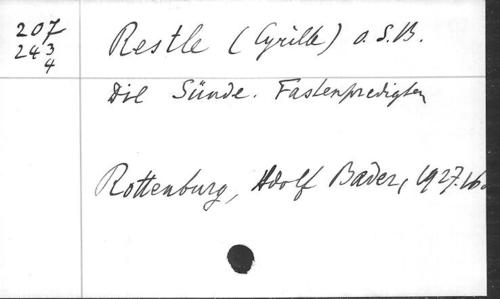 207
243
4
Restle (Cyrille) o.S.B.
Die Sünde. Fastenpredigten
Rottenburg, Adolf Bader, 1927.